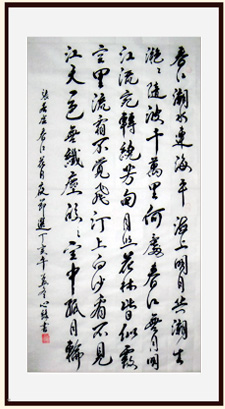 春江潮水連海平海上明月共潮生
灩〻隨波千萬里何處春江無月明
江流宛轉繞芳甸月照花林皆似霰
空里流霜不覺飛汀上白沙看不見
江天一色無纖塵皎〻空中孤月輪
張若虛春江花月夜節選丁亥年書